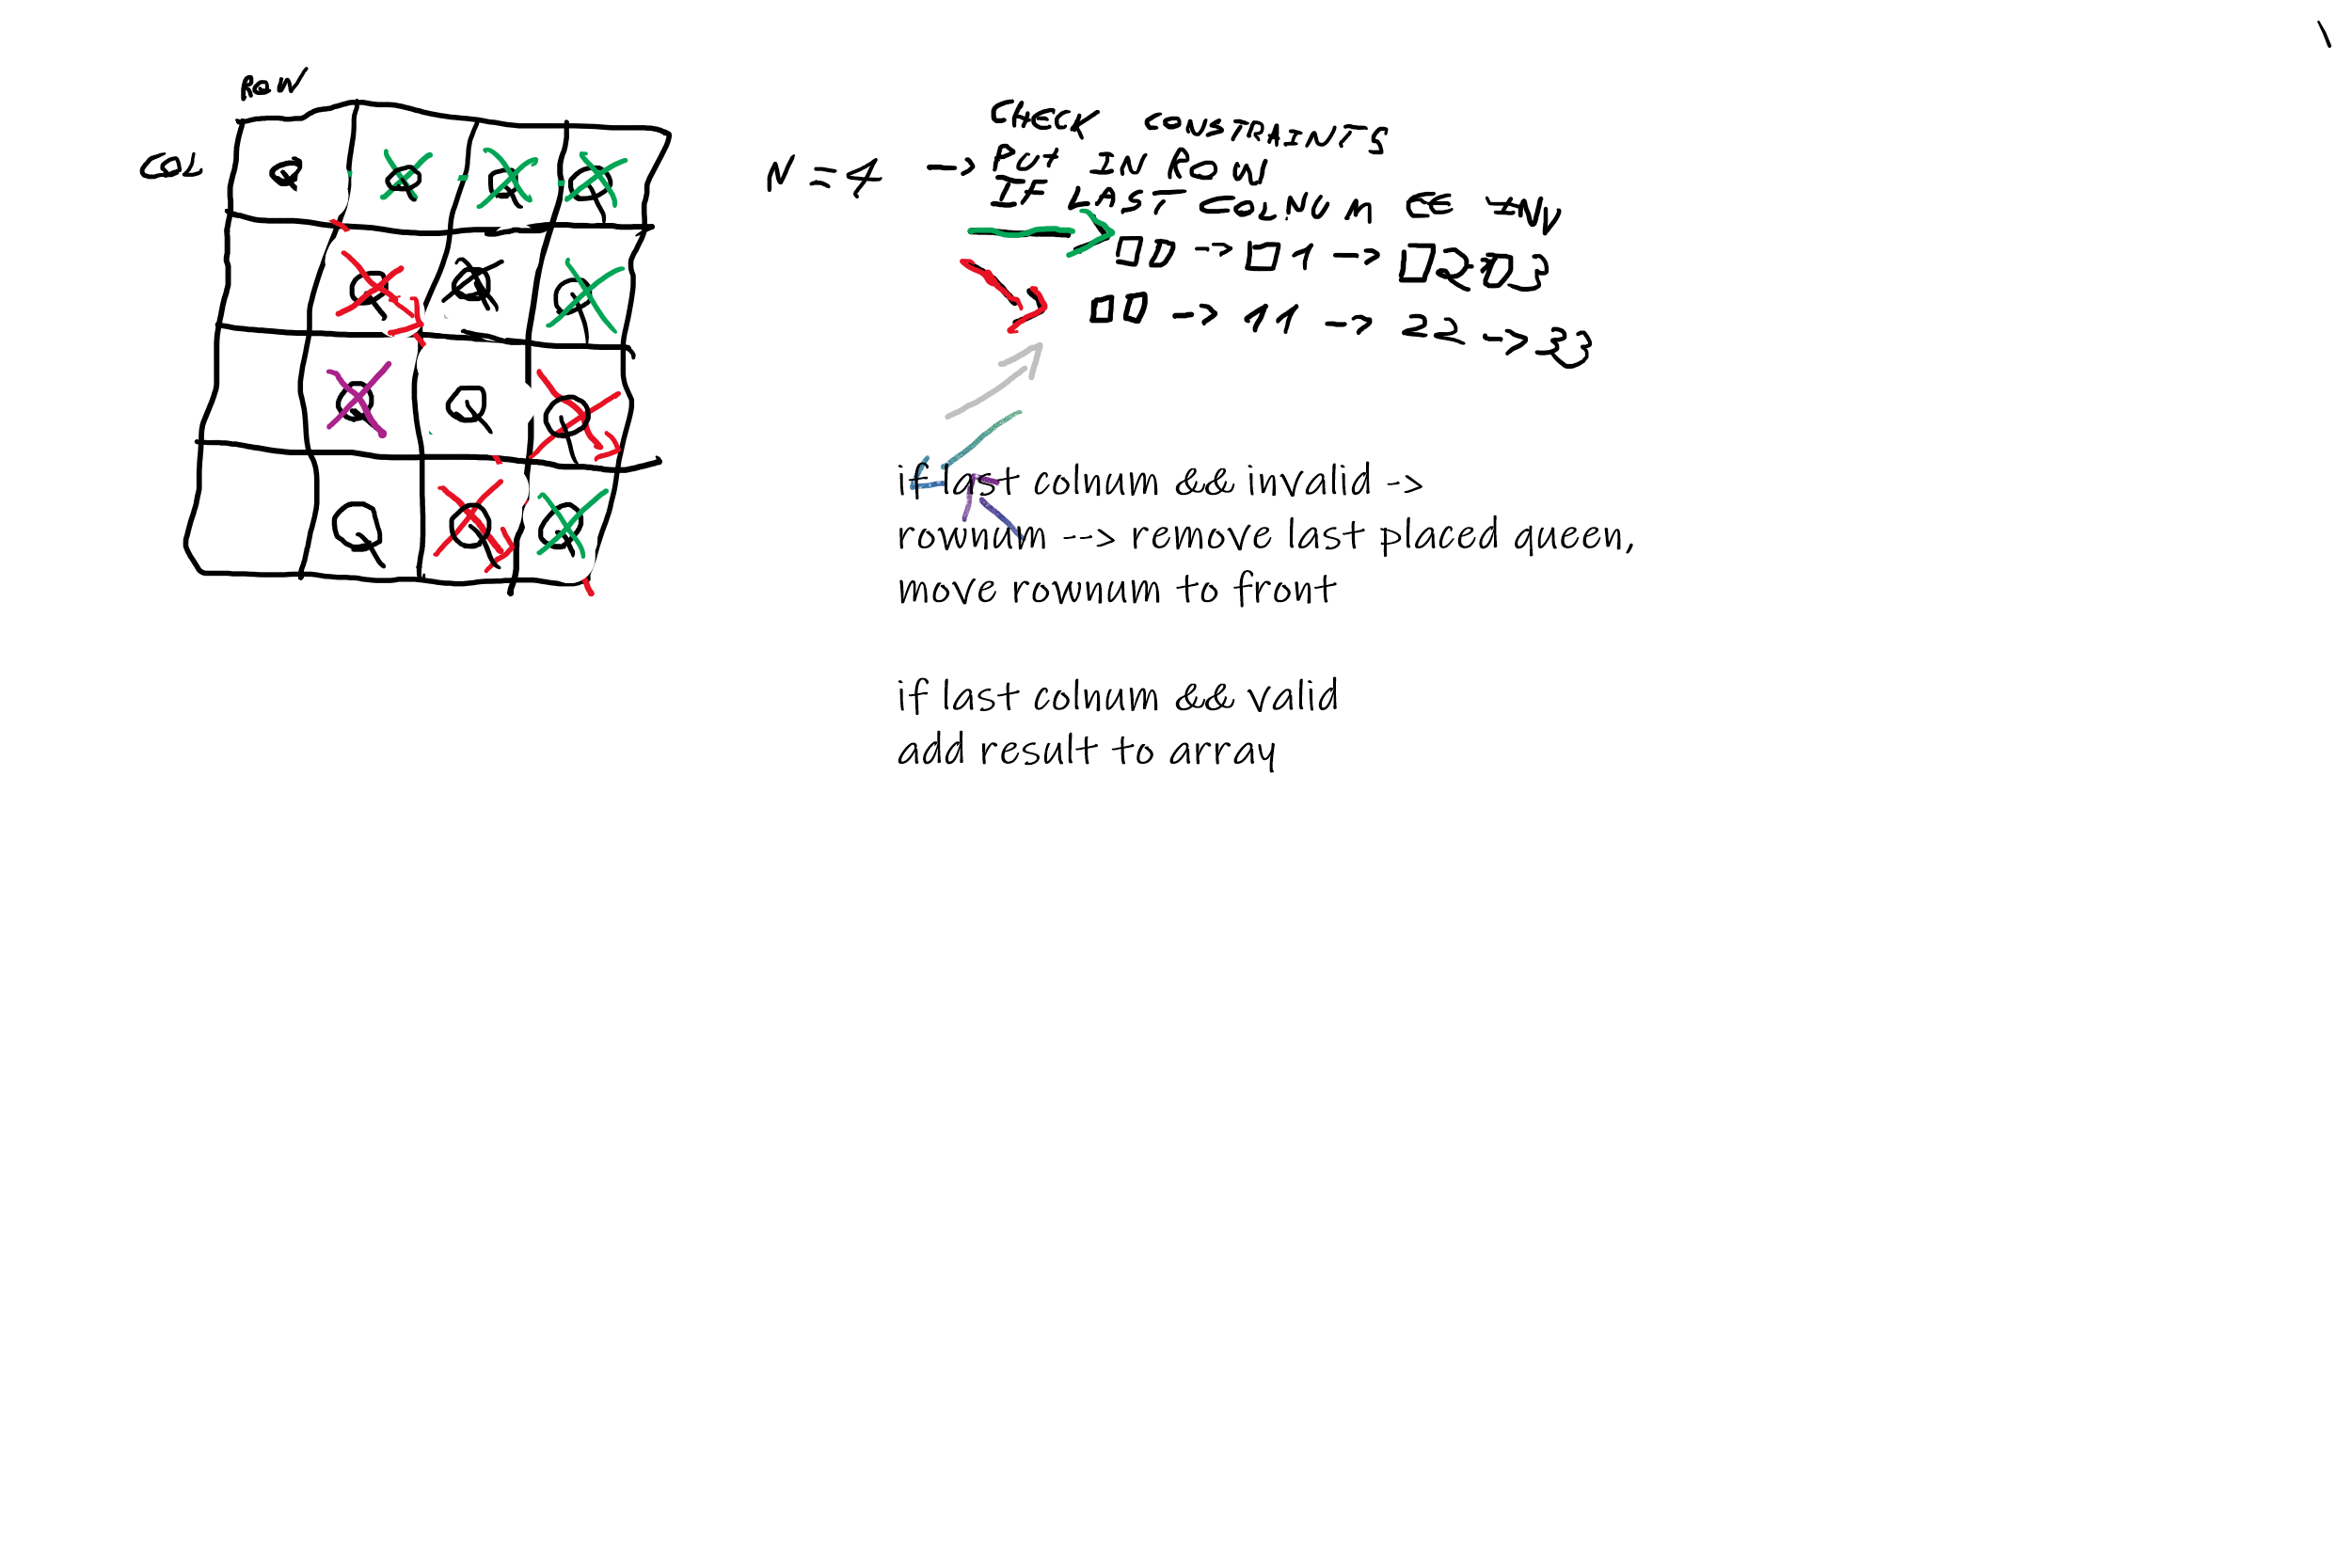 ROW
COL
Q Q Q Q
Q Q Q
Q Q Q
Q Q Q
N = 4
CHECK CONSTRAINTS
-> PUT IN ROW
IF LAST COLNUM
00 -> 01 -> 02 03
00 -> 11 -> 22 -> 33
if last colnum && invalid ->
rownum --> remove last placed queen,
move rownum to front
if last colnum && valid
add result to array